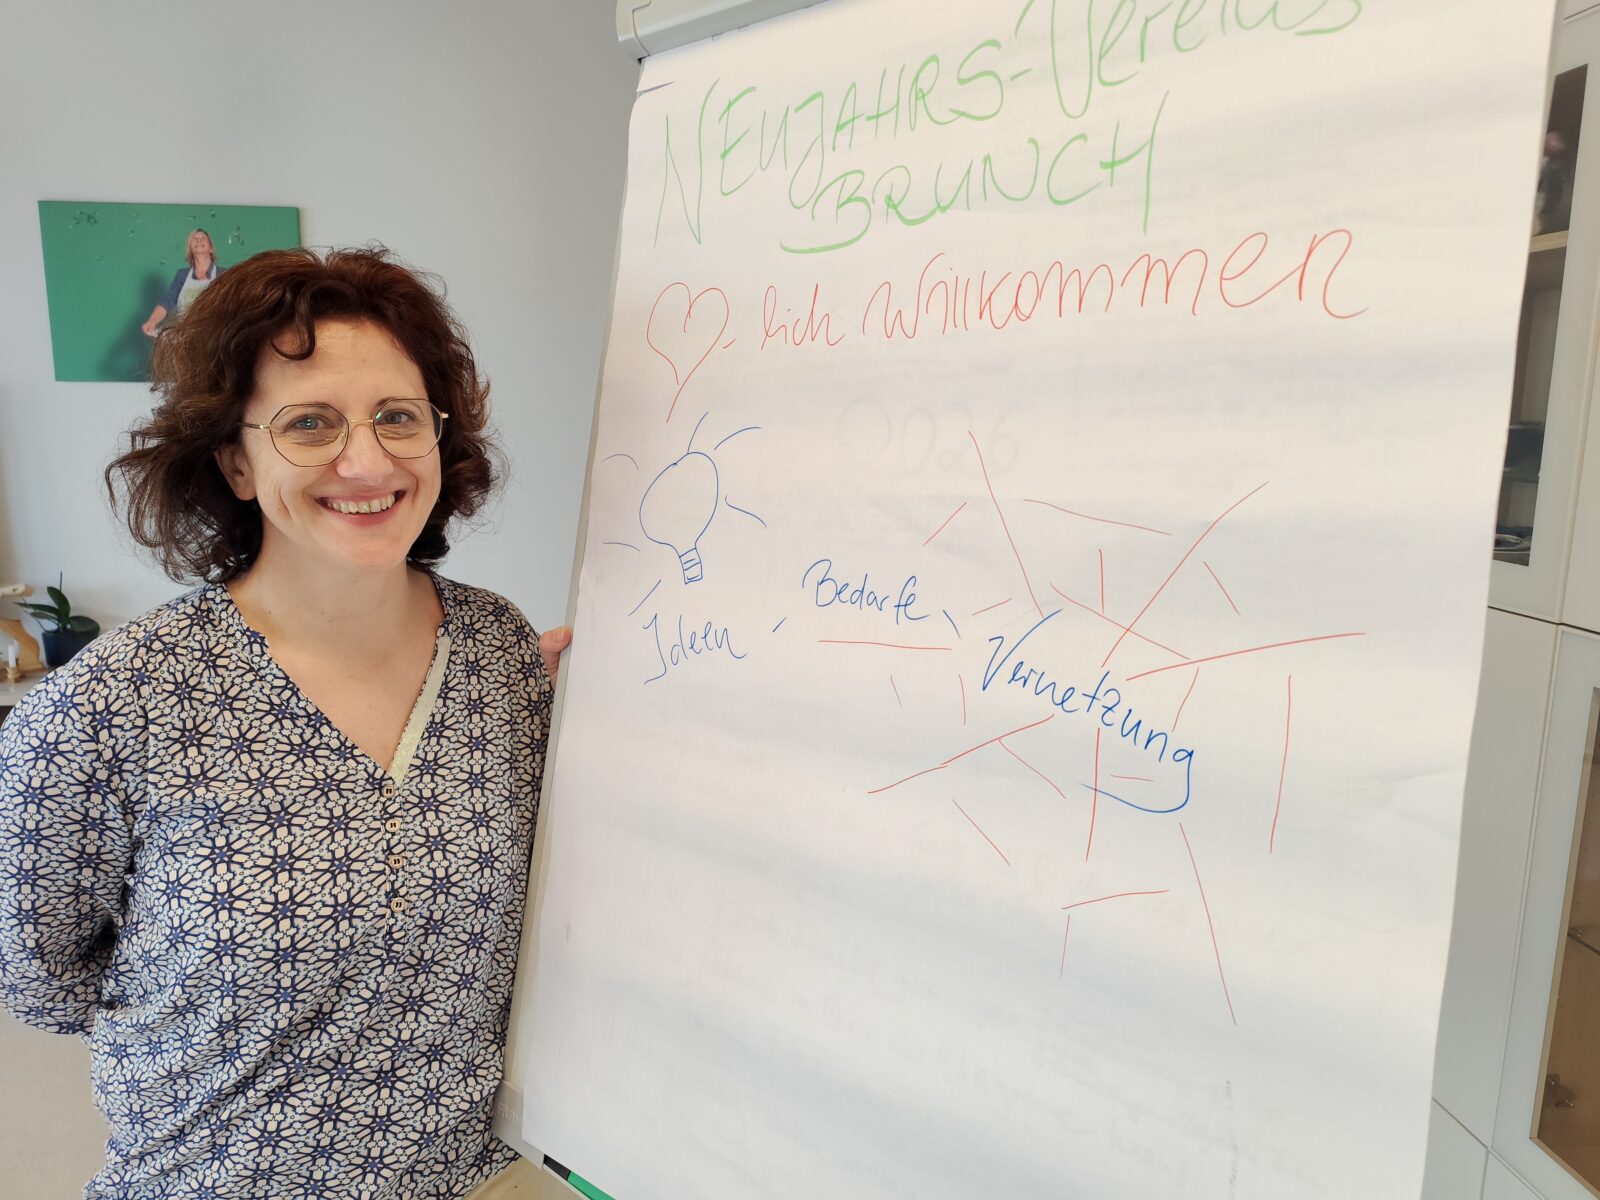 NEUJAHRS-Vereins
BRUNCH
♡-lich Willkommen
Ideen
Bedarfe
Vernetzung